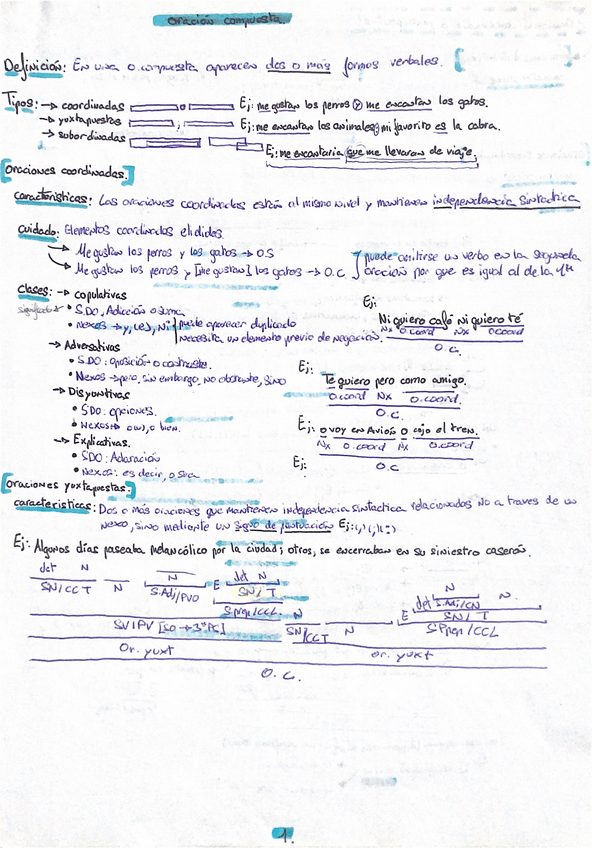 Oración compuesta.
Definición: En una o.compuesta aparecen dos o más formas verbales.
Tipos: → coordinadas o Ej: me gustan los perros y me encantan los gatos.
→ yuxtapuestas , Ej: me encantan los animales; mi favorito es la cabra.
→ subordinadas
Ej: me encantaría que me llevaran de viaje.
Oraciones coordinadas.
Características: Las oraciones coordinadas están al mismo nivel y mantienen independencia sintáctica
Cuidado: Elementos coordinados elididos.
→ Me gustan los perros y los gatos → O.S
→ Me gustan los perros y [me gustan] los gatos → O.C.
puede omitirse un verbo en la segunda
oración por que es igual al de la 1ª
Clases: → Copulativas
significado
• SDO, Adicción o suma
• Nexos → y, (e), Ni puede aparecer duplicado
necesita un elemento previo de negación.
Ej:
Ni quiero café Ni quiero té
Nx O.coord Nx O.coord
O.C.
→ Adversativas
• SDO: oposición o contraste.
• Nexos → pero, sin embargo, no obstante, sino
Ej:
Te quiero pero como amigo.
O.coord Nx O.coord
O.C.
→ Disyuntivas
• SDO: opciones.
• Nexos → o(u), o bien.
Ej: O voy en Avión O cojo el tren.
Nx O.coord Nx O.coord
O.C
→ Explicativas.
• SDO: Aclaración
• Nexos: es decir, o sea
Ej:
Oraciones yuxtapuestas.
características: Dos o más oraciones que mantienen independencia sintáctica relacionados No a través de un
Nexo, sino mediante un signo de puntuación Ej:
Ej: Algunos días paseaba melancólico por la ciudad; otros, se encerraban en su siniestro caserón.
det N N det N N
SN/CCT N S.Adj/PVO E SN/T N E det S.Adj/CN N
S.prep/CCL SN/CCT N SN/T
SV/PV [SO → 3ª PS] S.Prep/CCL
Or. yuxt Or. yuxt
O.C.
1.